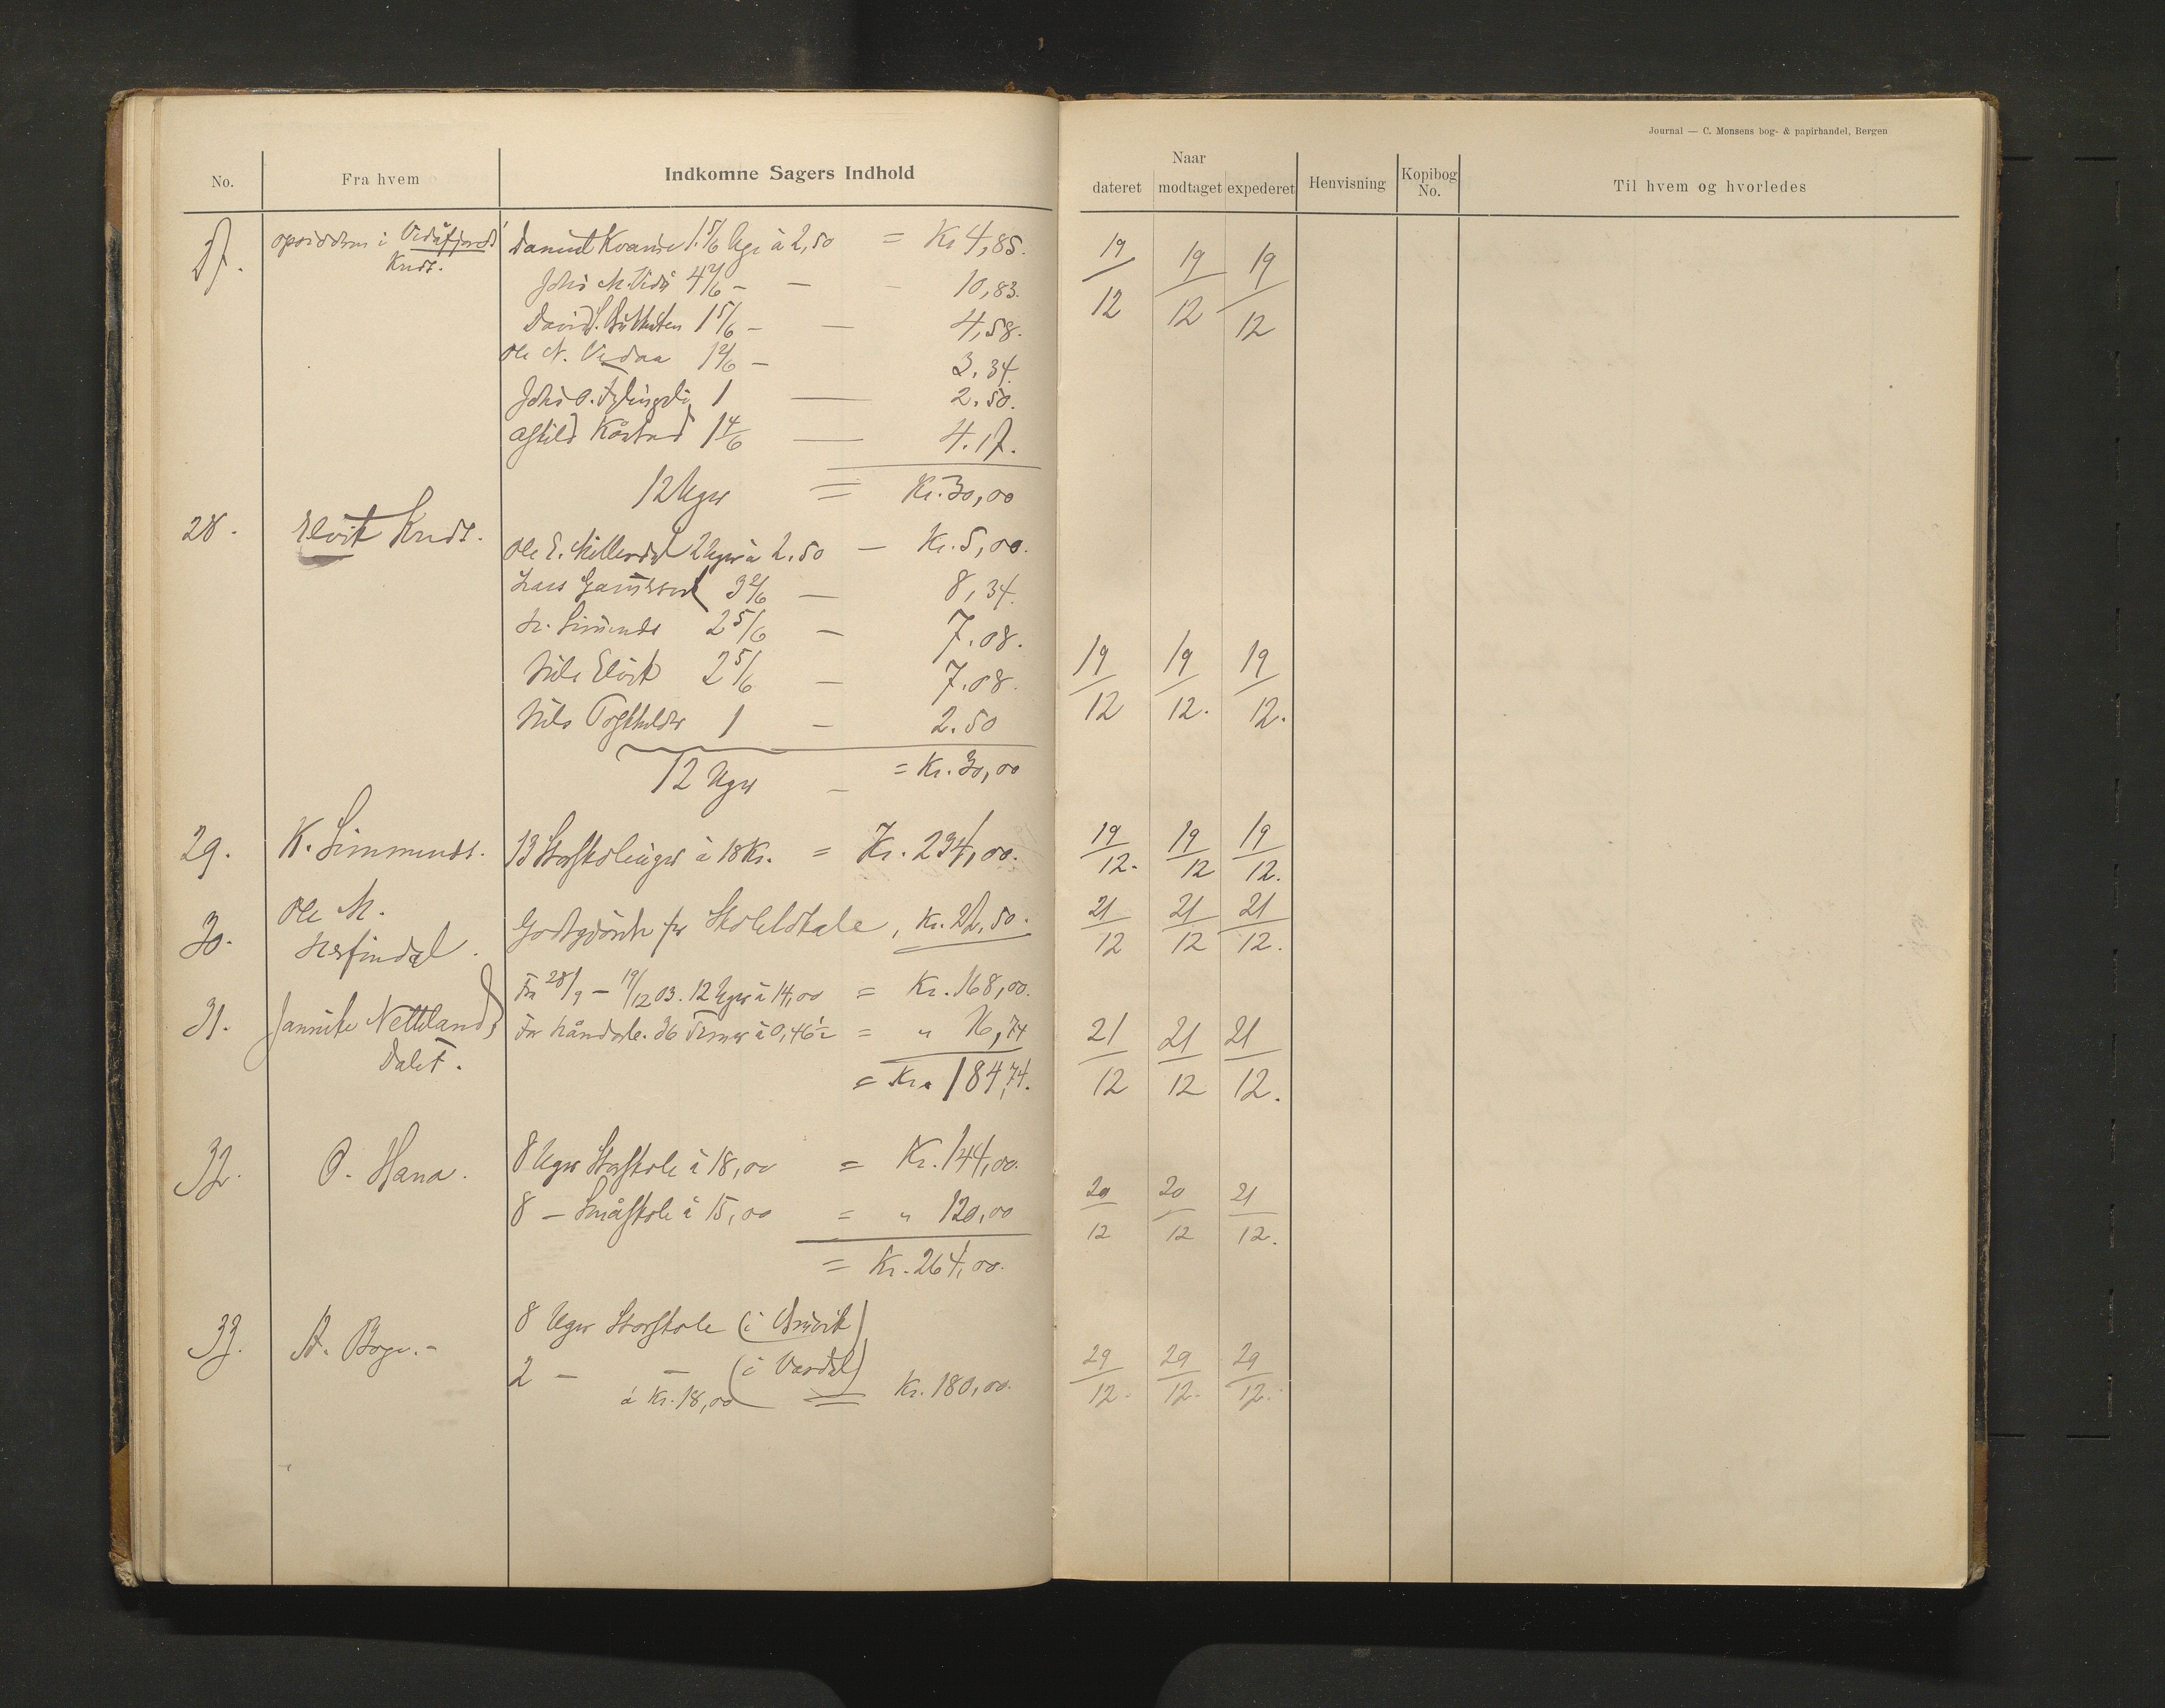 Journal — C. Monsens bog- & papirhandel, Bergen
No. Fra hvem Indkomne Sagers Indhold
Naar
dateret modtaget expederet Henvisning Kopibog No. Til hvem og hvorledes
27. i Vidåfjords Daniel Kvamme 1 5/6 Uge à 2,50 = Kr 4,85. 19/12 19/12 19/12
Krds.
4 2/6 — — 10,83.
David 1 5/6 — — 4,58.
Ole N. Vedaa 1 2/6 — 3.34.
Johs O. 1 — 2.50.
Kårstad 1 4/6 — 4.17.
12 Uger = Kr. 30,00
28. Elvik Krds. Ole E. 2 Uger à 2.50 — Kr. 5,00.
Lars 3 2/6 — 8,34.
2 5/6 — 7.08.
Nils Elvik 2 5/6 — 7.08. 19/12 19/12. 19/12.
Nils 1 — 2.50
12 Uger — = Kr. 30,00
29. K. Simmenes. 13 Storskoleuger à 18 Kr. = Kr. 234,00. 19/12. 19/12 19/12.
30. Ole M. Herfindal. Godtgjörelse for Skolelokale, Kr. 22,50. 21/12 21/12 21/12.
31. Jannike Netteland, Fra 28/9 — 19/12 03. 12 Uger à 14,00 = Kr. 168,00.
Dalet. For Håndarb. 36 Timer à 0,46½ = " 16,74 21/12 21/12 21/12.
= Kr. 184,74.
32. O. Hana. 8 Uger Storskole à 18,00 = Kr. 144,00.
8 — Småskole à 15,00 = " 120,00 20/12 20/12 21/12.
= Kr. 264,00.
33. A. Boge. - 8 Uger Storskole (i )
2 — — (i Vardal) 29/12. 29/12. 29/12.
à Kr. 18,00 = Kr. 180,00.